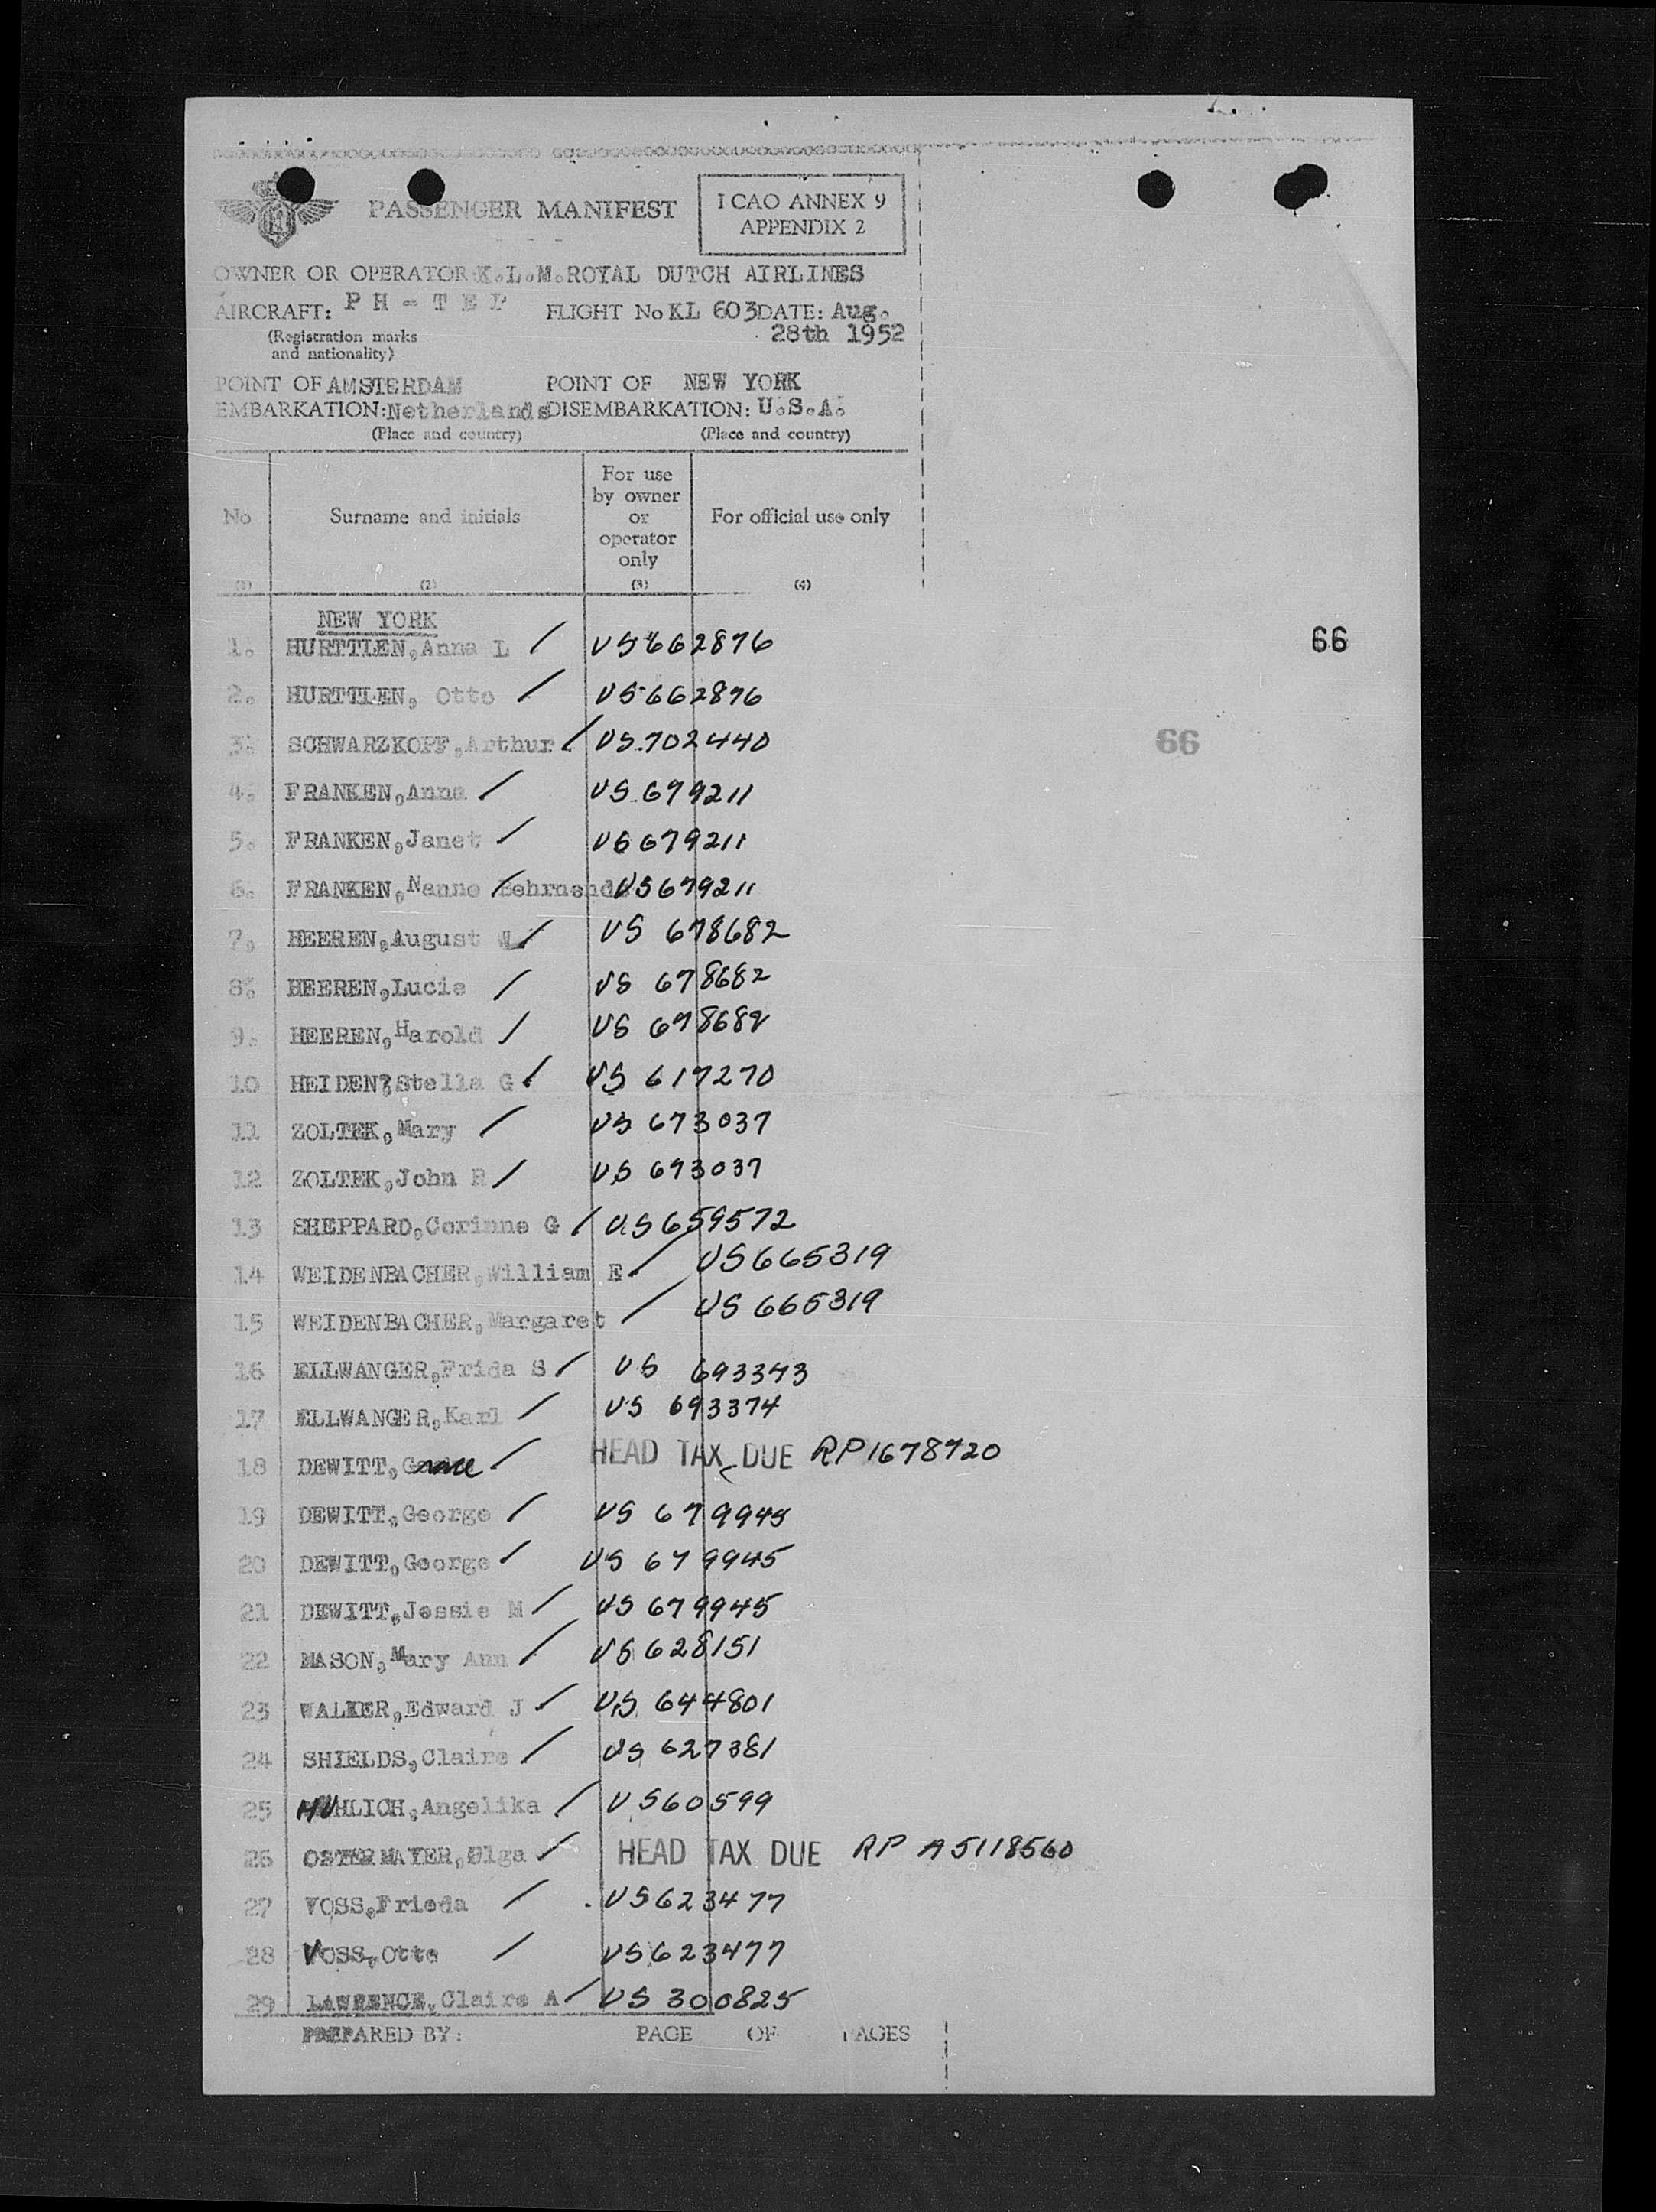 PASSENGER MANIFEST
ICAO ANNEX 9
APPENDIX 2
OWNER OR OPERATOR: K.L.M. ROYAL DUTCH AIRLINES
AIRCRAFT: PH-TEP FLIGHT No KL 603 DATE: Aug.
28th 1952
(Registration marks
and nationality)
POINT OF AMSTERDAM POINT OF NEW YORK
EMBARKATION: Netherlands DISEMBARKATION: U.S.A.
(Place and country) (Place and country)
No Surname and initials For use by owner or operator only For official use only
(1) (2) (3) (4)
NEW YORK
1. HURTTLEN, Anna L / US 662876
66
2. HURTTLEN, Otto / US 662876
3. SCHWARZKOPF, Arthur / US 702440
66
4. FRANKEN, Anna / US 679211
5. FRANKEN, Janet / US 679211
6. FRANKEN, Nanno / US 679211
7. HEEREN, August W. / US 678682
8. HEEREN, Lucie / US 678682
9. HEEREN, Harold / US 678682
10 HEIDEN, Stella G / US 617270
11 ZOLTEK, Mary / US 673037
12 ZOLTEK, John R / US 673037
13 SHEPPARD, Corinne G / US 659572
14 WEIDENBACHER, William E / US 665319
15 WEIDENBACHER, Margaret / US 665319
16 ELLWANGER, Frida S / US 693343
17 ELLWANGER, Karl / US 693374
18 DEWITT, / HEAD TAX DUE RP 1678720
19 DEWITT, George / US 679945
20 DEWITT, George / US 679945
21 DEWITT, Jessie M / US 679945
22 MASON, Mary Ann / US 628151
23 WALKER, Edward J / US 644801
24 SHIELDS, Claire / US 627381
25 HUHLICH, Angelika / US 60599
26 OSTERMAYER, Olga / HEAD TAX DUE RP A5118560
27 VOSS, Frieda / US 623477
28 VOSS, Otto / US 623477
29 LAWRENCE, Claire A / US 300825
PREPARED BY: PAGE OF PAGES